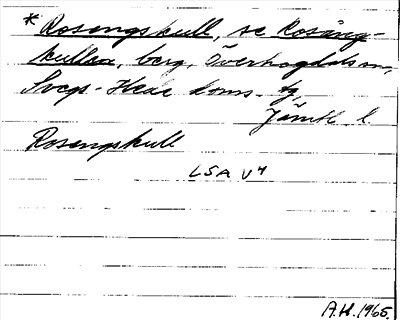 * Rosengskull, se Rosäng-
kullen, berg, Överhogdals sn,
Svegs-Hede koms. tg,
Jämtl l.
Rosengskull
LSA V4
A.H. 1965.